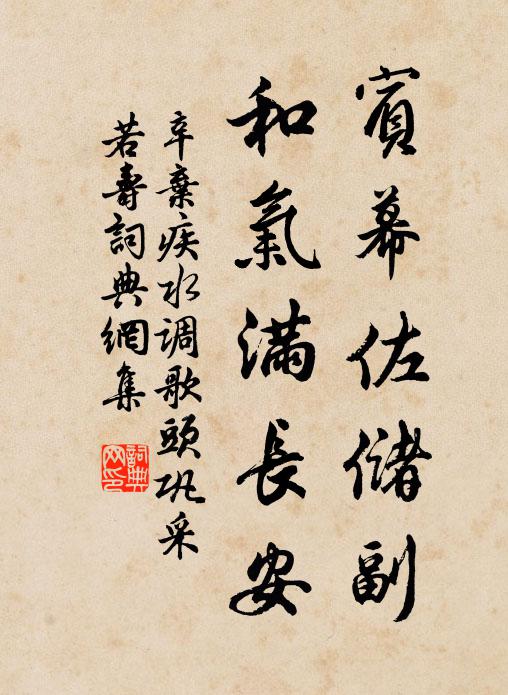 賓幕佐儲副
和氣滿長安
辛棄疾水调歌頭巩采
若壽詞典網集
詞典网印